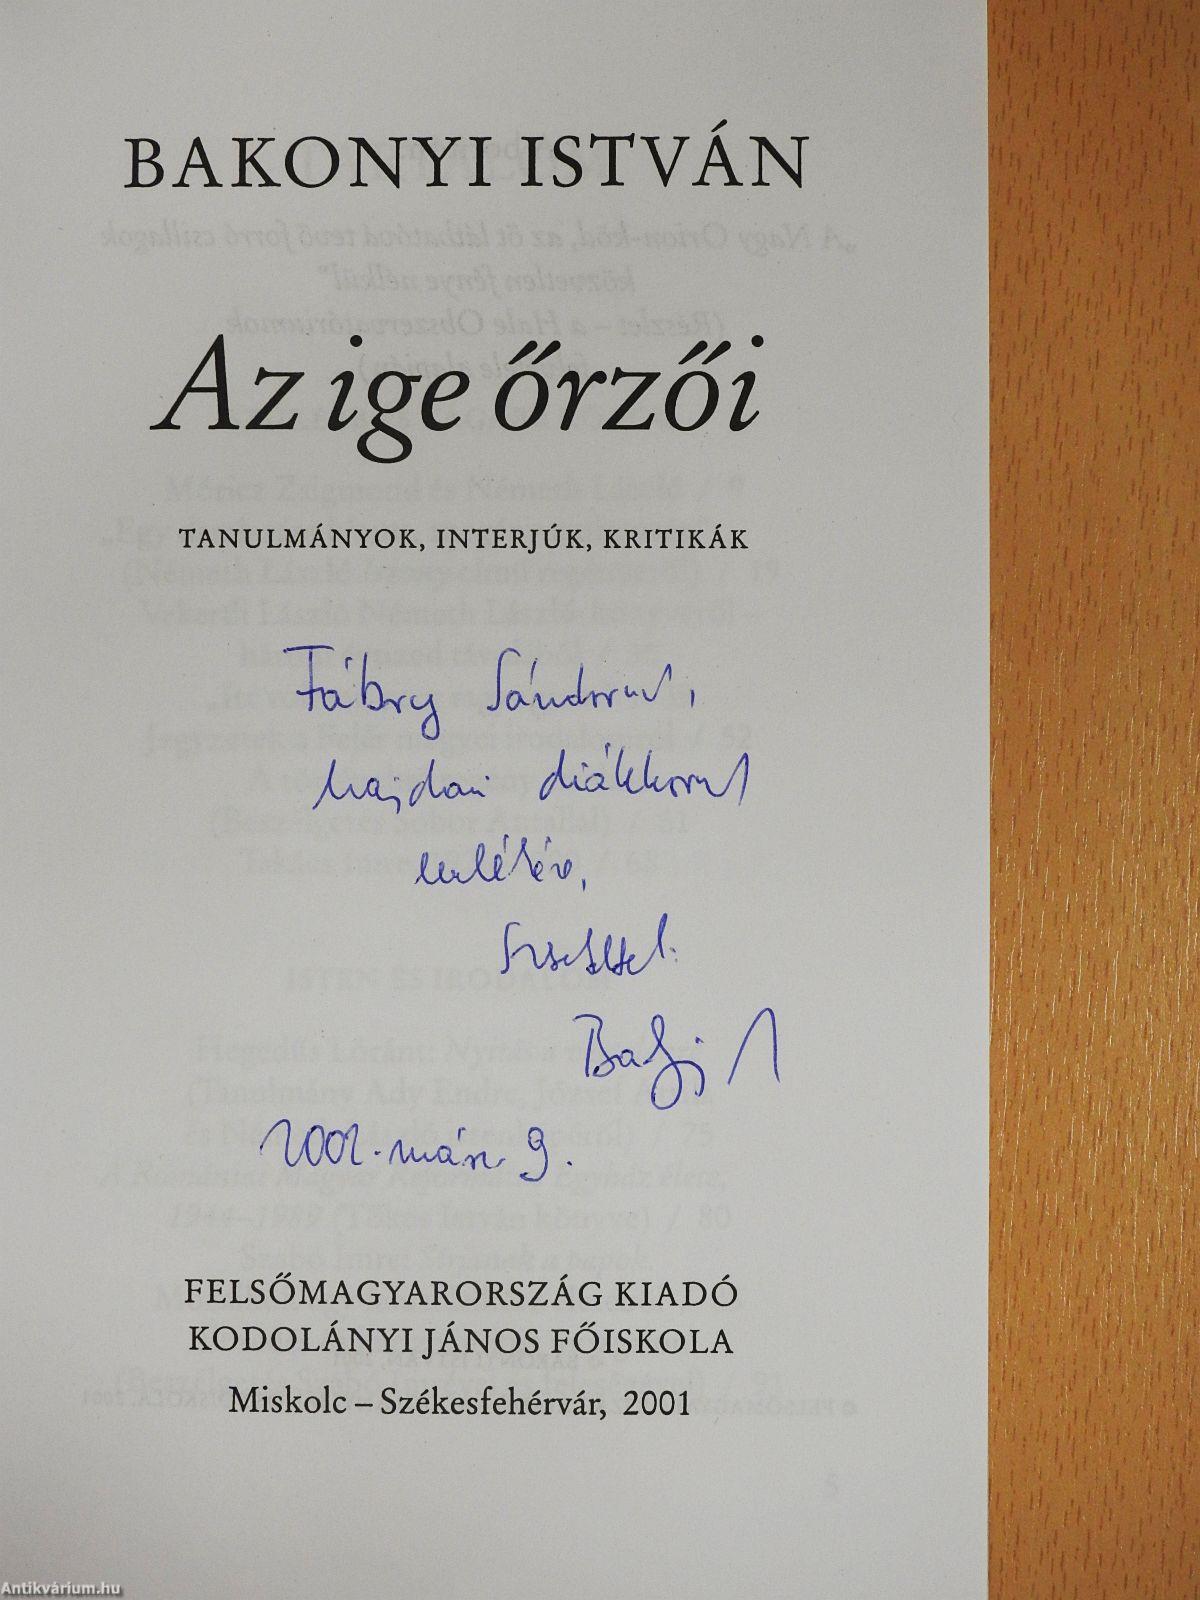 BAKONYI ISTVÁN
Az ige őrzői
TANULMÁNYOK, INTERJÚK, KRITIKÁK
Fábry Sándornak,
hajdani diákkorunk
emlékére,
szeretettel:
2002. márc. 9.
FELSŐMAGYARORSZÁG KIADÓ
KODOLÁNYI JÁNOS FŐISKOLA
Miskolc – Székesfehérvár, 2001
5
Antikvárium.hu